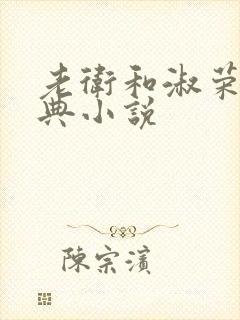 老衛和淑荣
典小说
陳宗濱